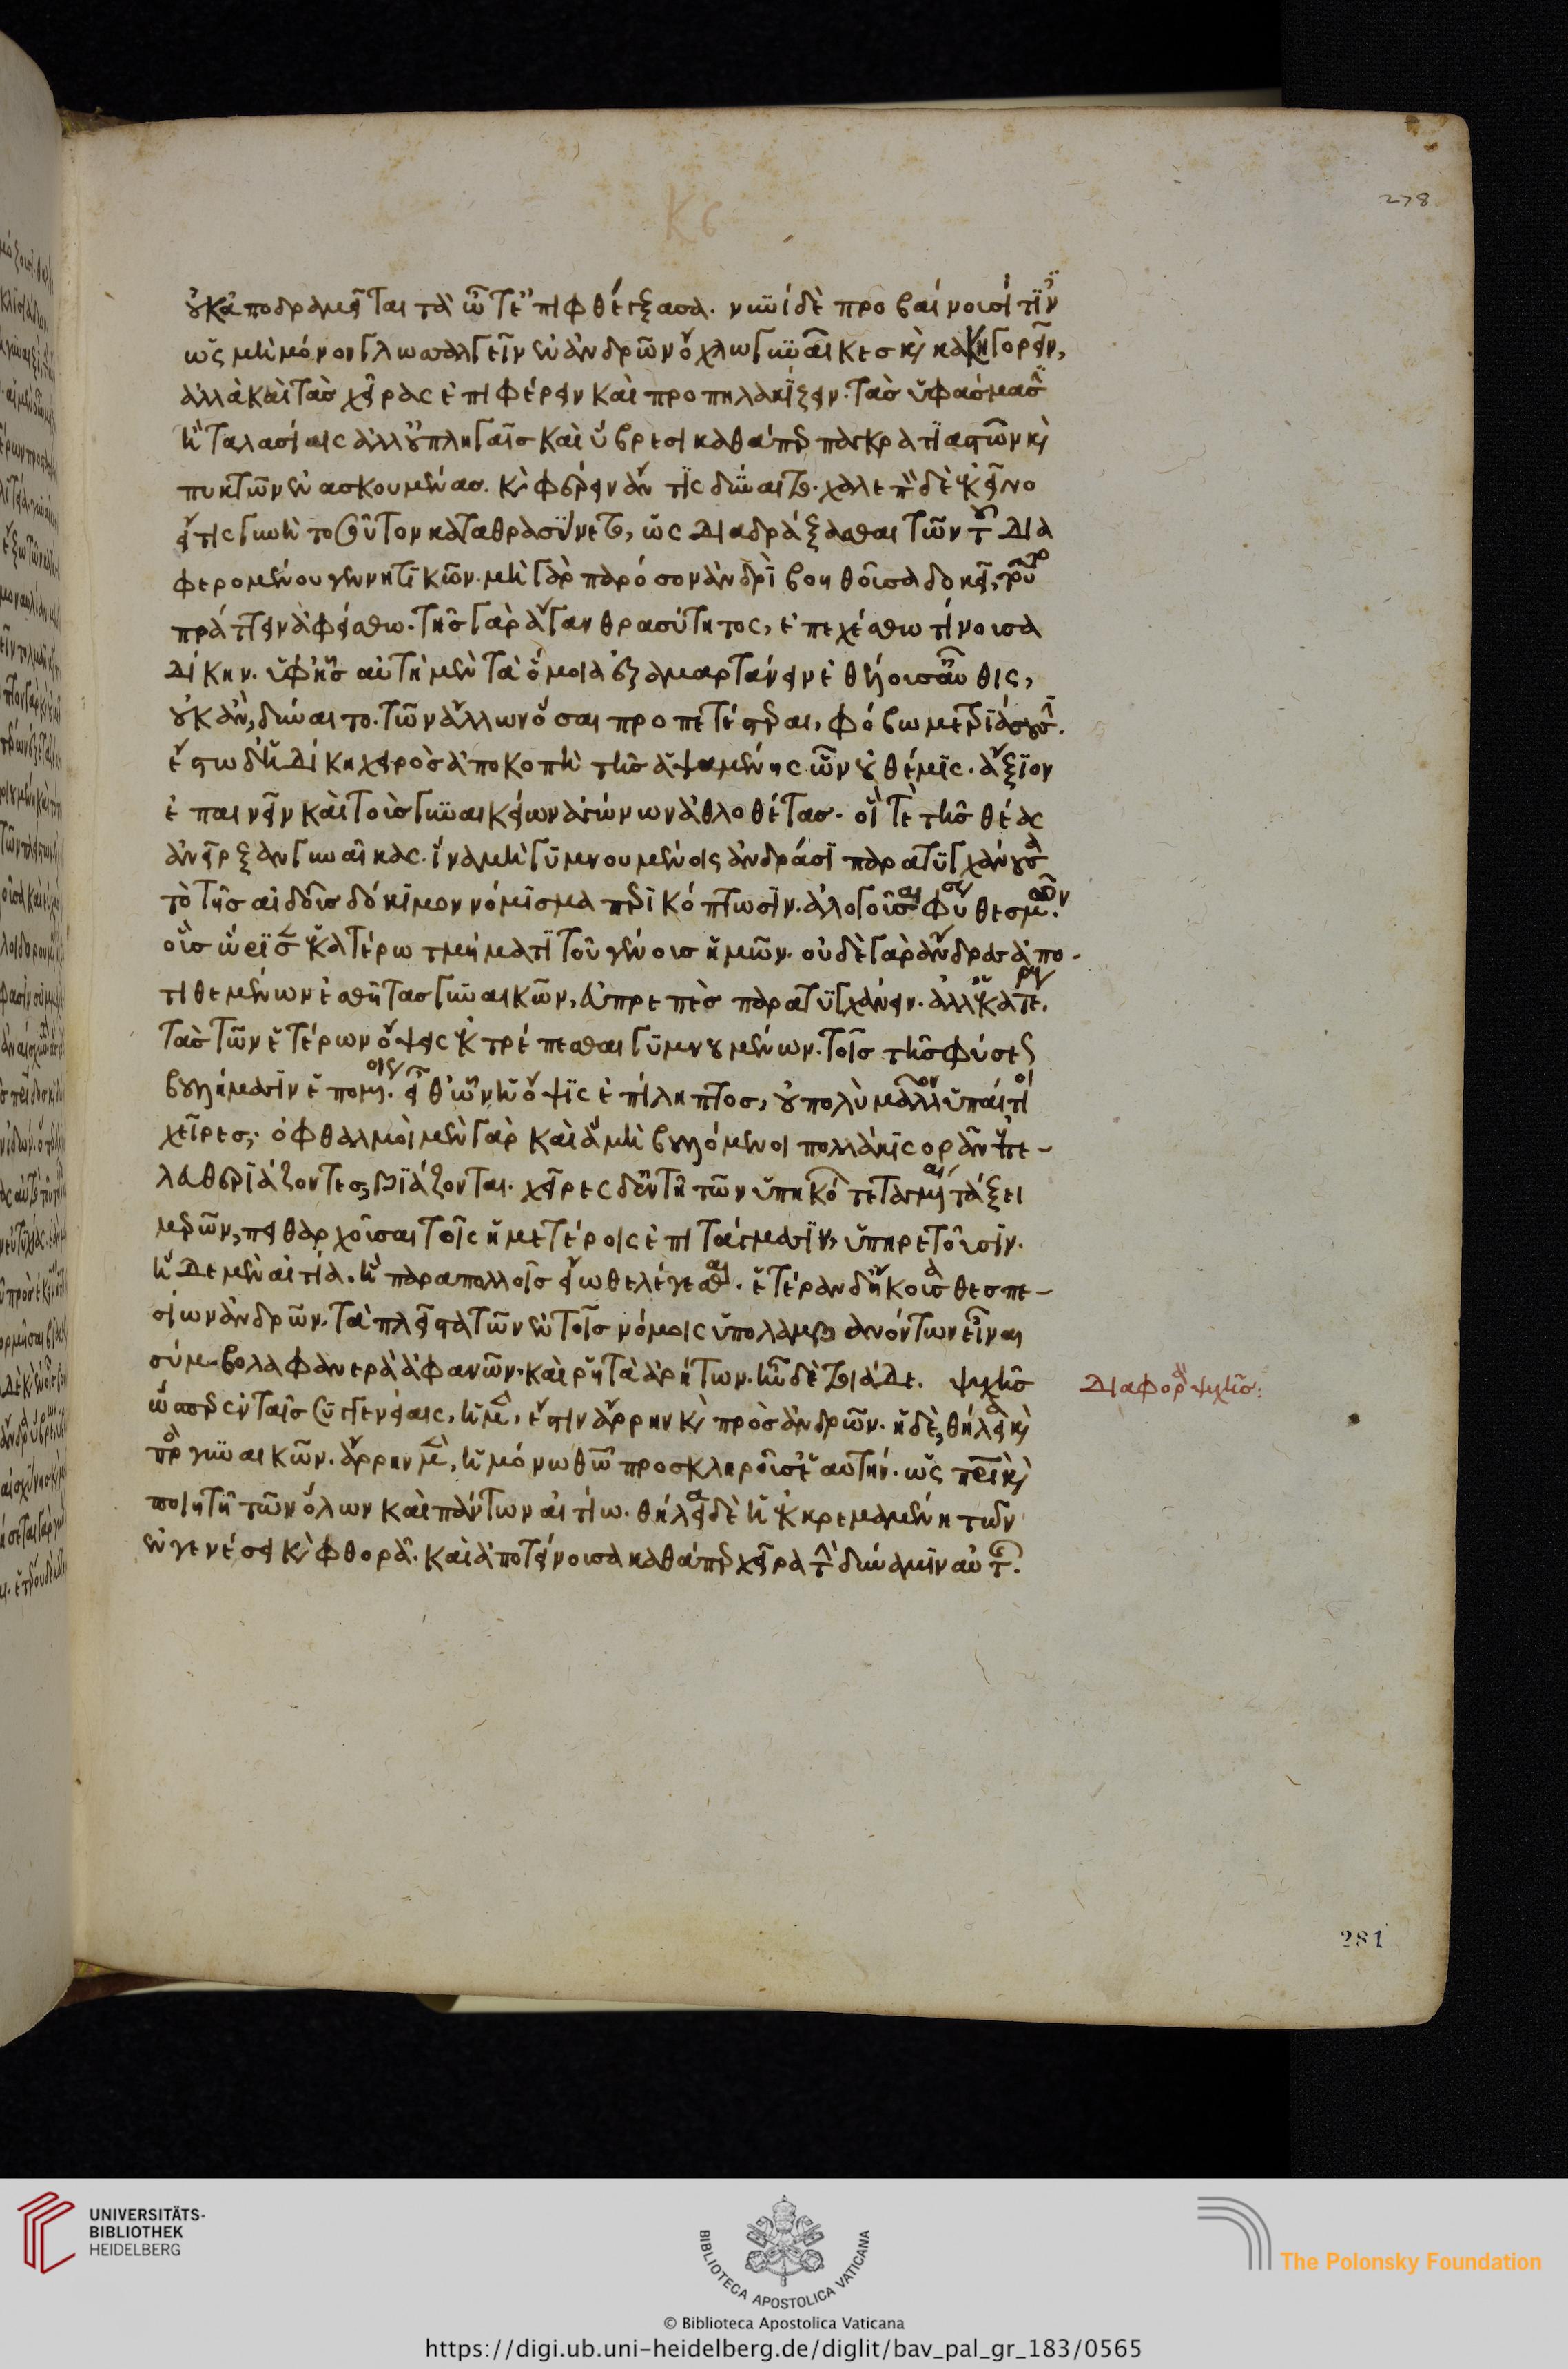 Κϛ
οὐκ ἀποδραμεῖται τὰ ὦτ' ἐπιφθέγξασα. νυνὶ δὲ προβαίνουσί τινες
ὡς μὴ μόνον γλωσσαλγεῖν ἐν ἀνδρῶν ὄχλω γυναῖκες καὶ κακηγορεῖν,
ἀλλὰ καὶ τὰς χεῖρας ἐπιφέρειν καὶ προπηλακίζειν. τὰς ὑφάσμασι
ἢ ταλασίαις ἀλλ' οὐ πληγαῖς καὶ ὕβρεσι καθάπερ παγκρατιαστῶν καὶ
πυκτῶν ἐνασκουμένας. καὶ φέρειν ἄν τις δύναιτο. χαλεπὸν δὲ ἐκεῖνο
εἴ τις γυνὴ τοσοῦτον καταθρασύνεται, ὡς διαδράξασθαι τῶν τοῦ δια
φερομένου γεννητικῶν. μὴ γὰρ παρόσον ἀνδρὶ βοηθοῦσα δοκεῖ, τοῦτο
πράττειν ἀφείσθω. τῆς γὰρ ἄγαν θρασύτητος, ἐπεχέσθω τίνουσα
δίκην. ὑφ' ἧς αὐτὴ μὲν τὰ ὅμοια ἐξαμαρτάνειν ἐθέλουσα αὖθις,
οὐκ ἂν, δύναιτο. τῶν ἄλλων ὅσαι προπετέστεραι, φόβω μετριάσουσι.
ἔστω δ' ἡ δίκη χειρὸς ἀποκοπὴ τῆς ἁψαμένης ὧν οὐ θέμις. ἄξιον
ἐπαινεῖν καὶ τοὺς γυναικείων ἀγώνων ἀθλοθέτας. οἵ τε τῆς θέας
ἀνεῖρξαν γυναῖκας. ἵνα μὴ γυμνουμένοις ἀνδράσι παρατυγχάνουσαι
τὸ τῆς αἰδοῦς δόκιμον νόμισμα περικόπτωσιν. ἀλογοῦσαι φύσεως θεσμῶν.
οὓς ὥρισεν ἑκατέρω τμήματι τοῦ γένους ἡμῶν. οὐδὲ γὰρ ἄνδρας ἀπο-
τιθεμένων ἐσθῆτας γυναικῶν, εὐπρεπὲς παρατυγχάνειν. ἀλλ' ἑκατέρους
τὰς τῶν ἑτέρων ὄψεις ἐκτρέπεσθαι γυμνουμένων. τοῖς τῆς φύσεως
βουλήμασιν ἑπομένους. εἶθ' ὧν ἡ ὄψις ἐπίληπτος, οὐ πολὺ μᾶλλον ὑπαίτιοι
χεῖρες; ὀφθαλμοὶ μὲν γὰρ καὶ ἃ μὴ βουλόμενοι πολλάκις ὁρᾶν ἀπε-
λευθεριάζοντες, βιάζονται. χεῖρες δ' ἐν τῆ τῶν ὑπηκόων τεταγμέναι τάξει
μερῶν, πειθαρχοῦσαι τοῖς ἡμετέροις ἐπιτάγμασιν, ὑπηρετοῦσιν.
ἥδε μὲν αἰτία. ἡ παρὰ πολλοῖς εἴωθε λέγεσθαι. ἑτέραν δ' ἤκουσα θεσπε-
σίων ἀνδρῶν. τὰ πλεῖστα τῶν ἐν τοῖς νόμοις ὑπολαμβανόντων εἶναι
σύμβολα φανερὰ ἀφανῶν. καὶ ῥητὰ ἀρρήτων. ἦν δὲ τοιάδε. ψυχῆς
ὥσπερ ἐν ταῖς συγγενείαις, ἡ μὲν, ἐστὶν ἄρρην καὶ πρὸς ἀνδρῶν. ἡ δὲ, θήλεια καὶ
πρὸς γυναικῶν. ἄρρην μὲν, ἡ μόνω θεῶ προσκληροῦσα ἑαυτήν. ὡς πατρὶ καὶ
ποιητῆ τῶν ὅλων καὶ πάντων αἰτίω. θήλεια δὲ ἡ ἐκκρεμαμένη τῶν
ἐν γενέσει καὶ φθορᾶ. καὶ ἀποτείνουσα καθάπερ χεῖρα τὴν δύναμιν αὐτῆς.
διαφορὰ ψυχῆς:
278
281
UNIVERSITÄTS-
BIBLIOTHEK
HEIDELBERG
BIBLIOTECA APOSTOLICA VATICANA
The Polonsky Foundation
© Biblioteca Apostolica Vaticana
https://digi.ub.uni-heidelberg.de/diglit/bav_pal_gr_183/0565